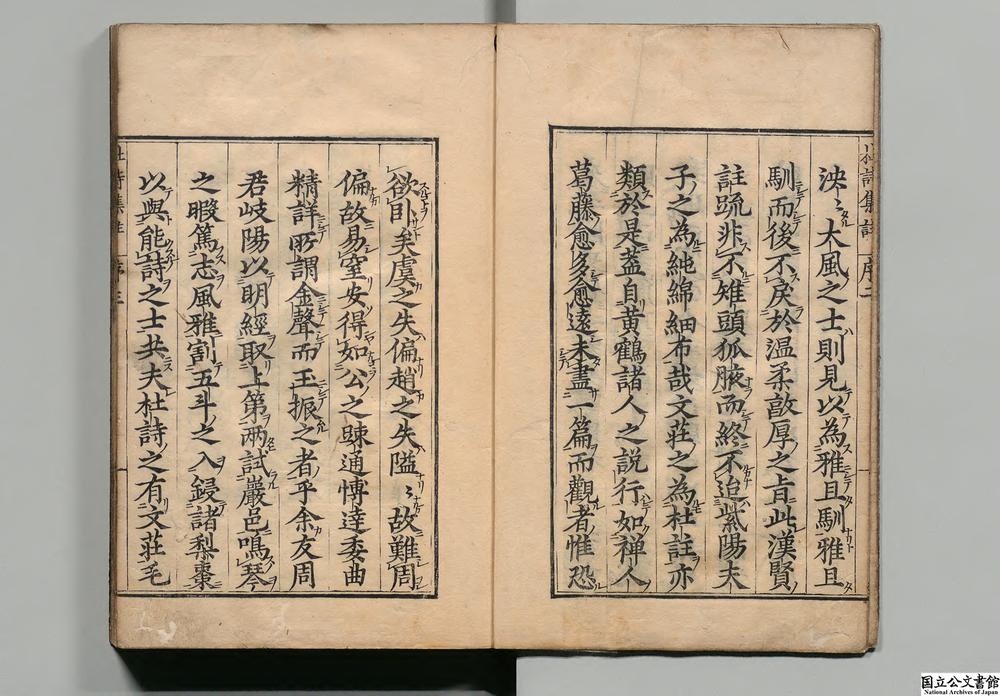 泱〻大風之士則見以為雅且馴雅且
馴而後不戾於温柔敦厚之旨此漢賢
註疏非不雉頭狐腋而終不迨紫陽夫
子之為純綿細布哉文莊之為杜註亦
類於是葢自黄鶴諸人之説行如禅人
葛藤愈多愈遠未盡一篇而觀者惟恐
欲卧矣虞之失偏趙之失隘〻故難周
偏故易窒安得如公之踈通博達委曲
精詳所謂金聲而玉振之者乎余友周
君岐陽以明經取上第兩試巖邑鳴琴
之暇篤志風雅割五斗之入鋟諸梨棗
以與能詩之士共夫杜詩之有文莊毛
杜詩集註 序二
杜詩集註 序三
国立公文書館
National Archives of Japan